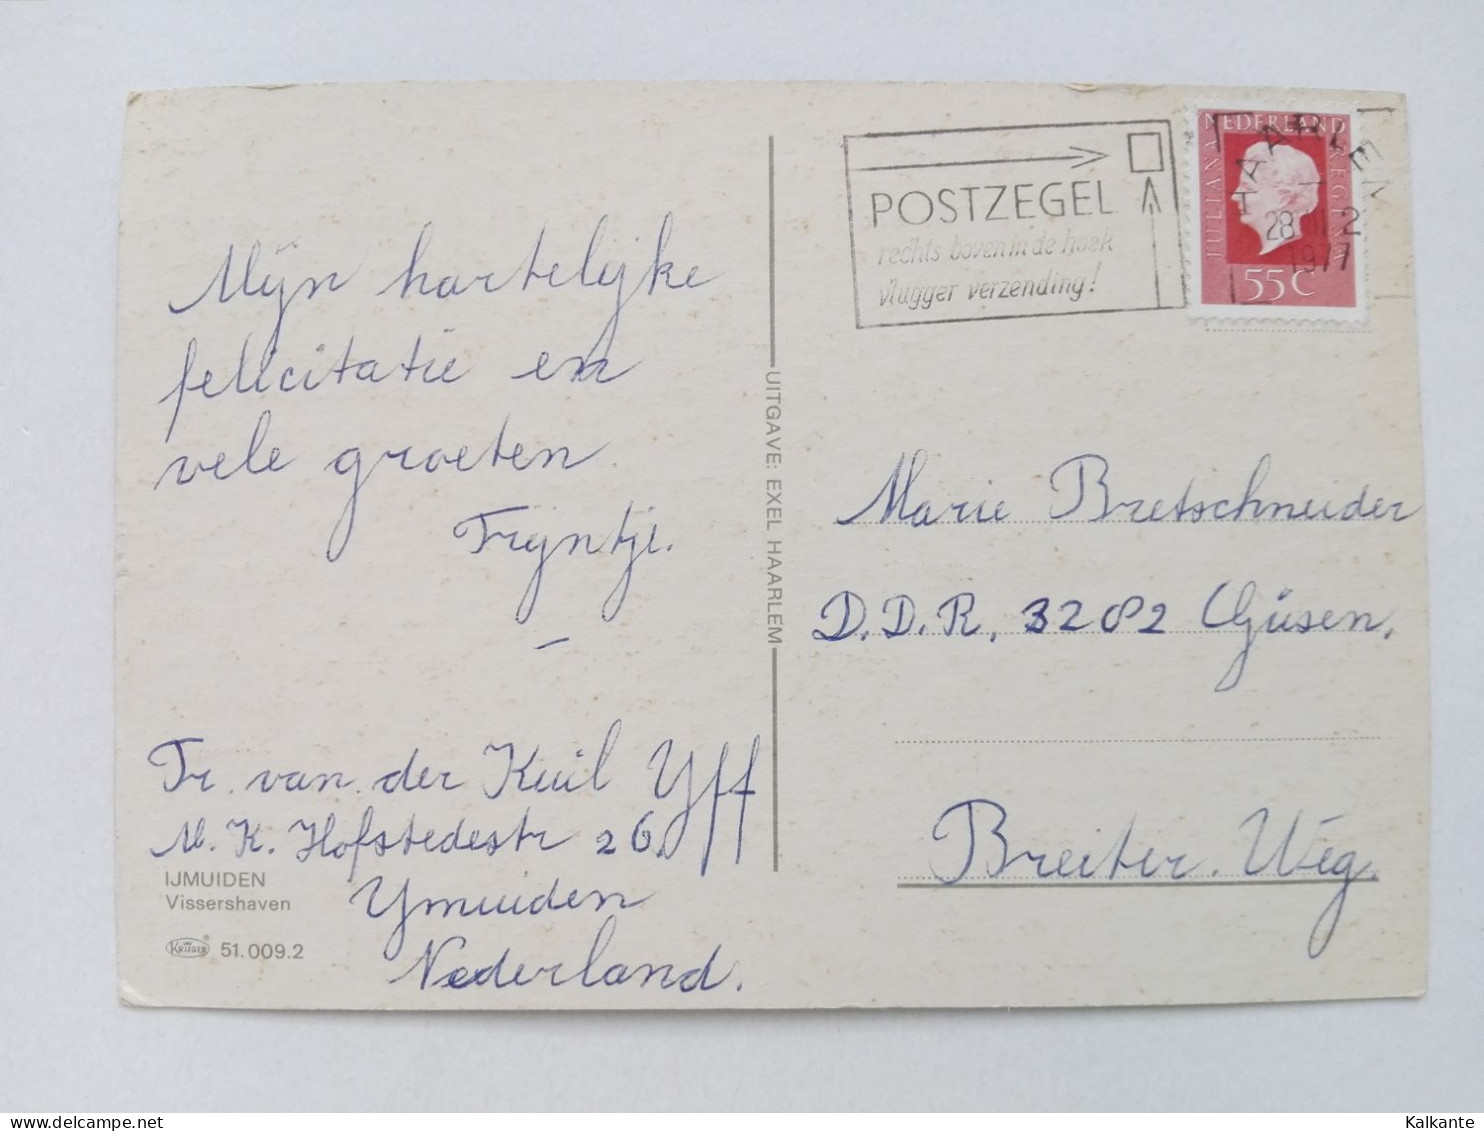 Mijn hartelijke
felicitatie en
vele groeten.
Trijntje.
Tr. van der Kuil Yff
M. K. Hofstedestr 26.
IJMUIDEN
Vissershaven
Ymuiden
Nederland.
KRÜGER 51.009.2
UITGAVE: EXEL HAARLEM
POSTZEGEL
rechts boven in de hoek
vlugger verzending!
NEDERLAND
JULIANA REGINA
55 C
HAARLEM
1977
Marie Bretschneider
D.D.R. 3202 Güsen.
Breiter. Weg.
delcampe.net
Kalkante